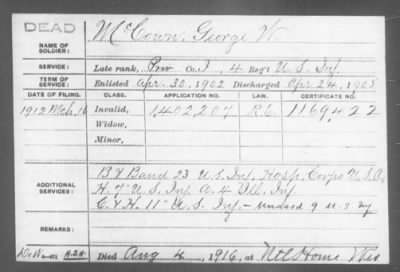 DEAD
NAME OF SOLDIER: McCown, George W.
SERVICE: Late rank, Priv Co. I, 4 Reg't U.S. Inf.
TERM OF SERVICE: Enlisted Apr. 30, 1902 Discharged Apr 24, 1905
DATE OF FILING. CLASS. APPLICATION NO. LAW. CERTIFICATE NO.
1912 Mch 16 Invalid, 1,402,207 R.E. 1169,422
Widow,
Minor,
ADDITIONAL SERVICES: B & Band 23 U.S. Inf, Hosp. Corps U.S.A,
H. 7" U.S. Inf A. 4 Ill. Inf.
C. & H. 11" U.S. Inf. - 9 U.S. Inf
REMARKS:
Died Aug 4, 1916, at Ntl Home Wis